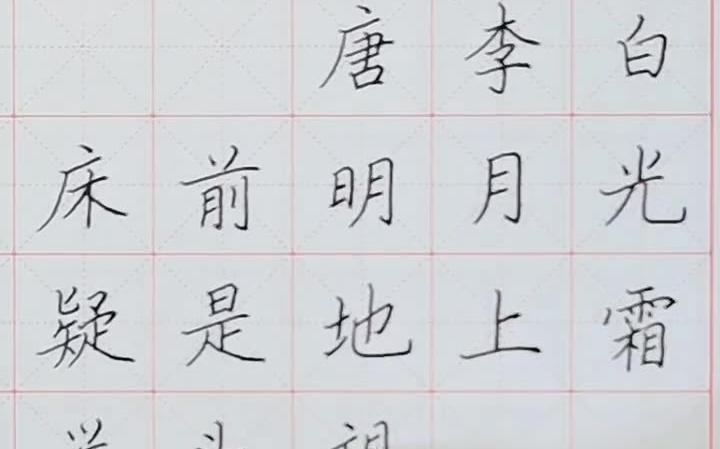 唐李白
床前明月光
疑是地上霜